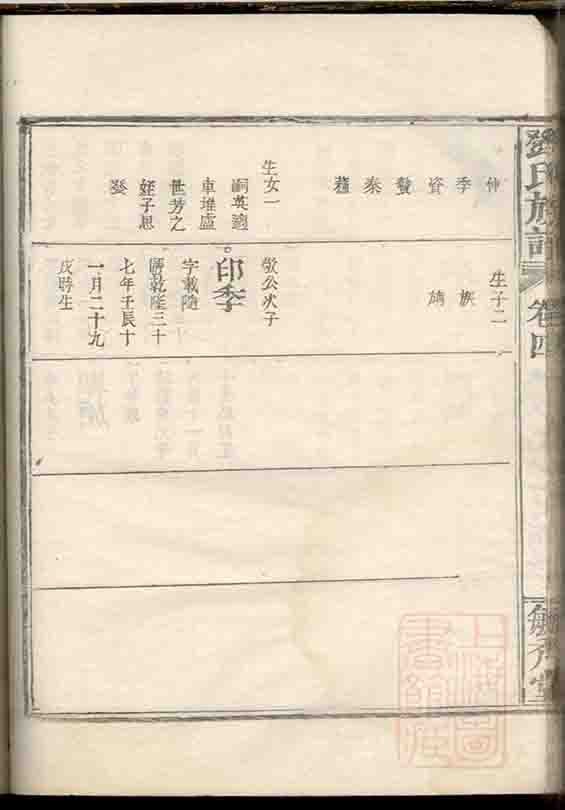 鄧氏族譜
卷四
仲
季
資
贊
泰
生女一
嗣英適
車堆盧
世芳之
姪子思
發
生子二
族
旃
敬公次子
印季
字載隨
國乾隆三十
七年壬辰十
一月二十九
戌時生
上海圖
書館藏